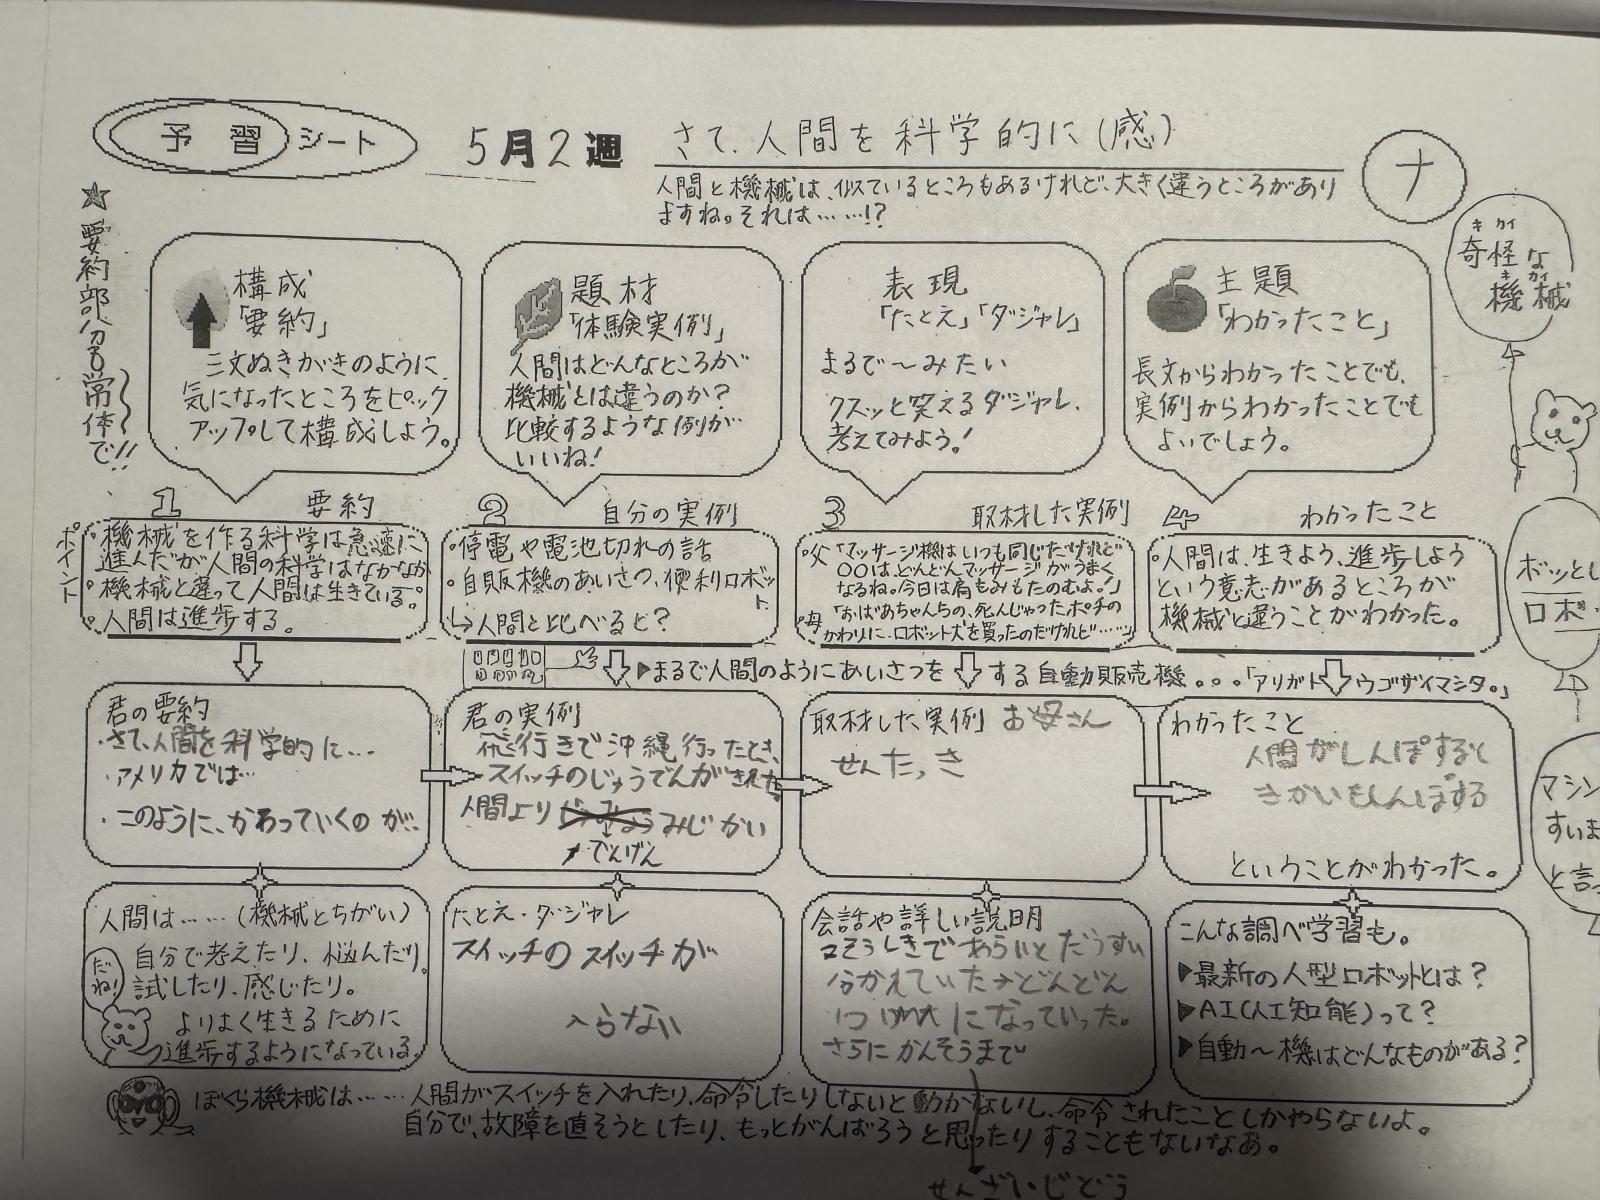 予習シート
5月2週
さて、人間を科学的に(感)
ナ
人間と機械は、似ているところもあるけれど、大きく違うところがあり
ますね。それは……!?
★要約部分も常体で!!
構成
「要約」
三文ぬきがきのように
気になったところをピック
アップして構成しよう。
題材
「体験実例」
人間はどんなところが
機械とは違うのか?
比較するような例が
いいね!
表現
「たとえ」「ダジャレ」
まるで〜みたい
クスッと笑えるダジャレ、
考えてみよう!
主題
「わかったこと」
長文からわかったことでも、
実例からわかったことでも
よいでしょう。
キカイ
奇怪な
キカイ
機械
ポイント
1 要約
・機械を作る科学は急速に
進んだが人間の科学はなかなか
・機械と違って人間は生きている。
・人間は進歩する。
2 自分の実例
・停電や電池切れの話
・自販機のあいさつ、便利ロボット
↳人間と比べると?
3 取材した実例
・父「マッサージ機はいつも同じだけれど
〇〇は、どんどんマッサージがうまく
なるね。今日は肩もみもたのむよ!」
・母「おばあちゃんちの、死んじゃったポチの
かわりに、ロボット犬を買ったのだけれど……」
4 わかったこと
・人間は、生きよう、進歩しよう
という意志があるところが
機械と違うことがわかった。
▶まるで人間のようにあいさつをする自動販売機。。。「アリガトウゴザイマシタ。」
君の要約
・さて、人間を科学的に…
・アメリカでは…
・このように、かわっていくのが…
君の実例
飛行きで沖縄行ったとき、
スイッチのじゅうでんがきれた
人間より みじかい
でんげん
取材した実例 お母さん
せんたっき
わかったこと
人間がしんぽすると
きかいもしんぽする
ということがわかった。
人間は……(機械とちがい)
自分で考えたり、悩んだり、
試したり、感じたり。
よりよく生きるために
進歩するようになっている。
だね!
たとえ・ダジャレ
スイッチのスイッチが
入らない
会話や詳しい説明
2そうしきであらいとだっすい
分かれていた→どんどん
1つ になっていった。
さらにかんそうまで
せんざいじどう
こんな調べ学習も。
▶最新の人型ロボットとは?
▶AI(人工知能)って?
▶自動〜機はどんなものがある?
ぼくら機械は……人間がスイッチを入れたり、命令したりしないと動かないし、命令されたことしかやらないよ。
自分で、故障を直そうとしたり、もっとがんばろうと思ったりすることもないなあ。
ボッとし
ロボ
マシン
すいま
と言っ